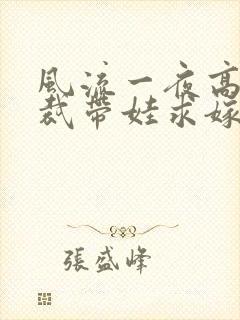 風流一夜高
裁帶娃求嫁
張盛峰